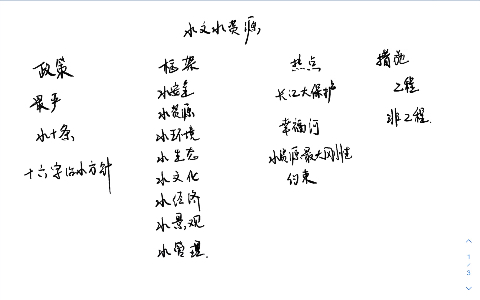 水文水资源
政策
最严
水十条
十六字治水方针
框架
水安全
水资源
水环境
水生态
水文化
水经济
水景观
水管理.
热点
长江大保护
幸福河
水资源最大刚性
约束
措施
工程
非工程.
1/3